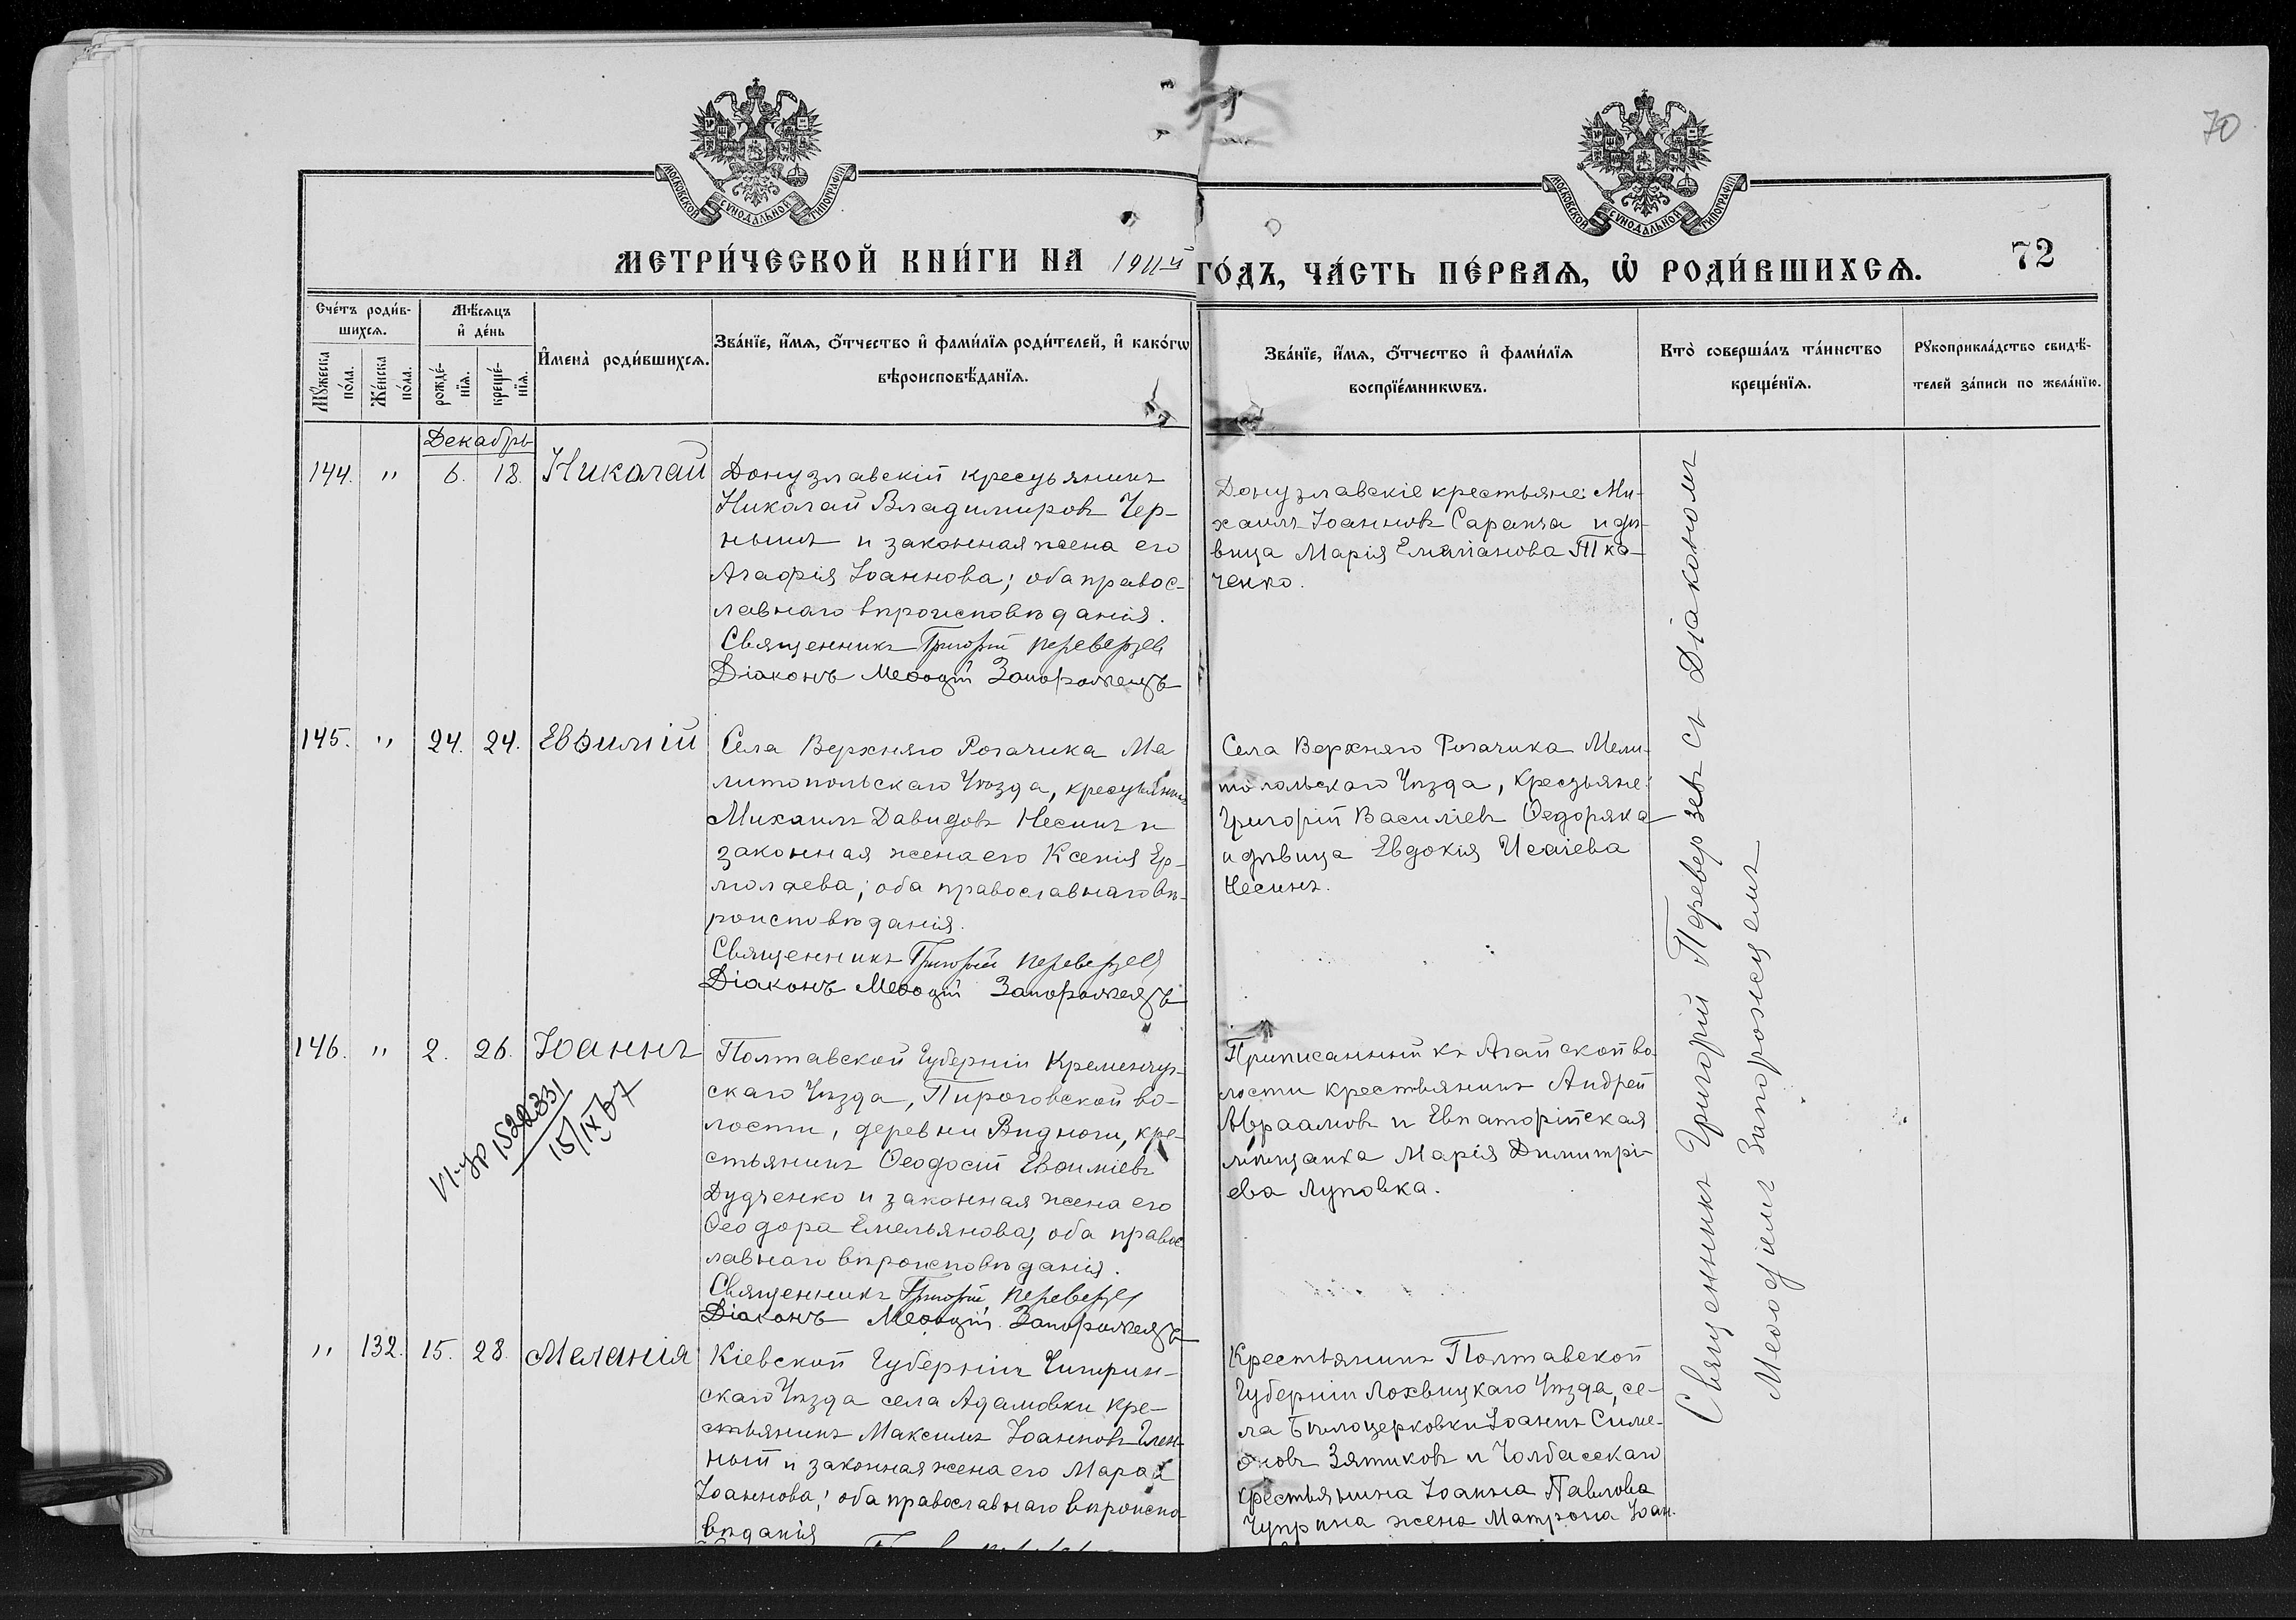 70
МОСКОВСКОЙ СѴНОДАЛЬНОЙ ТИПОГРАФІИ
МОСКОВСКОЙ СѴНОДАЛЬНОЙ ТИПОГРАФІИ
МЕТРИ́ЧЕСКОЙ КНИ́ГИ НА 1911й ГО́ДЪ, ЧА́СТЬ ПЕ́РВАѦ, Ѡ҆ РОДИ́ВШИХСѦ.
72
Сче́тъ роди́в-
шихсѧ.
Мꙋ́жеска
по́ла.
Же́нска
по́ла.
Мѣ́сѧцъ
и҆ де́нь
рожде́-
нїѧ.
креще́-
нїѧ.
И҆мена̀ роди́вшихсѧ.
Зва́нїе, и҆́мѧ, ѻ҆́тчество и҆ фами́лїѧ роди́телей, и҆ како́гѡ
вѣроисповѣ́данїѧ.
Зва́нїе, и҆́мѧ, ѻ҆́тчество и҆ фами́лїѧ
воспрїе́мникѡвъ.
Кто̀ соверша́лъ та́инство
креще́нїѧ.
Рꙋкоприкла́дство свидѣ́-
телей за́писи по жела́нїю.
Декабрь
144. " 6. 18. Николай
Донузлавскій крестьянинъ
Николай Владимировъ Чер-
нышъ и законная жена его
Агафія Іоаннова; оба правос-
лавнаго вѣроисповѣданія.
Священникъ Григорій Переверзев
Діаконъ Меѳодій Запорожецъ
Донузлавскіе крестьяне: Ми-
хаилъ Іоанновъ Саранча и дѣ-
вица Марія Емиліанова Тка-
ченко.
145. " 24. 24. Евѳимій
Села Верхняго Рогачика Ме
литопольскаго Уѣзда, крестьянинъ
Михаилъ Давидовъ Несинъ и
законная жена его Ксенія Ер-
молаева; оба православнаго вѣ-
роисповѣданія.
Священникъ Григорій Переверзев
Діаконъ Меѳодій Запорожецъ
Села Верхняго Рогачика Мели-
топольскаго Уѣзда, крестьяне:
Григорій Василіевъ Ѳедоряка
и дѣвица Евдокія Исаіева
Несинъ.
146. " 2. 26. Іоаннъ
152233
15/IX 67
Полтавской Губерніи Кременчуг-
скаго Уѣзда, Пироговской во-
лости, деревни Видноги, кре-
стьянинъ Ѳеодосій Евѳиміевъ
Дудченко и законная жена его
Ѳеодора Емельянова; оба правос
лавнаго вѣроисповѣданія.
Священникъ Григорій Переверзев
Діаконъ Меѳодій Запорожецъ
Приписанный къ Агайской во
лости крестьянинъ Андрей
Авраамовъ и Евпаторійская
мѣщанка Марія Димитрі-
ева Луповка.
" 132. 15. 28. Меланія
Кіевской Губерніи Чигирин-
скаго Уѣзда села Адамовки кре-
стьянинъ Максимъ Іоанновъ
ный и законная жена его
Іоаннова; оба православнаго вѣроиспо-
вѣданія
Крестьянинъ Полтавской
Губерніи Лохвицкаго Уѣзда, се-
ла Бѣлоцерковки Іоаннъ Симе-
оновъ Зятиковъ и Чолбасскаго
крестьянина Іоанна Павлова
Чуприна жена Матрона Іоан.
Священникъ Григорій Переверзевъ съ Діакономъ
Меѳодіемъ Запорожцемъ